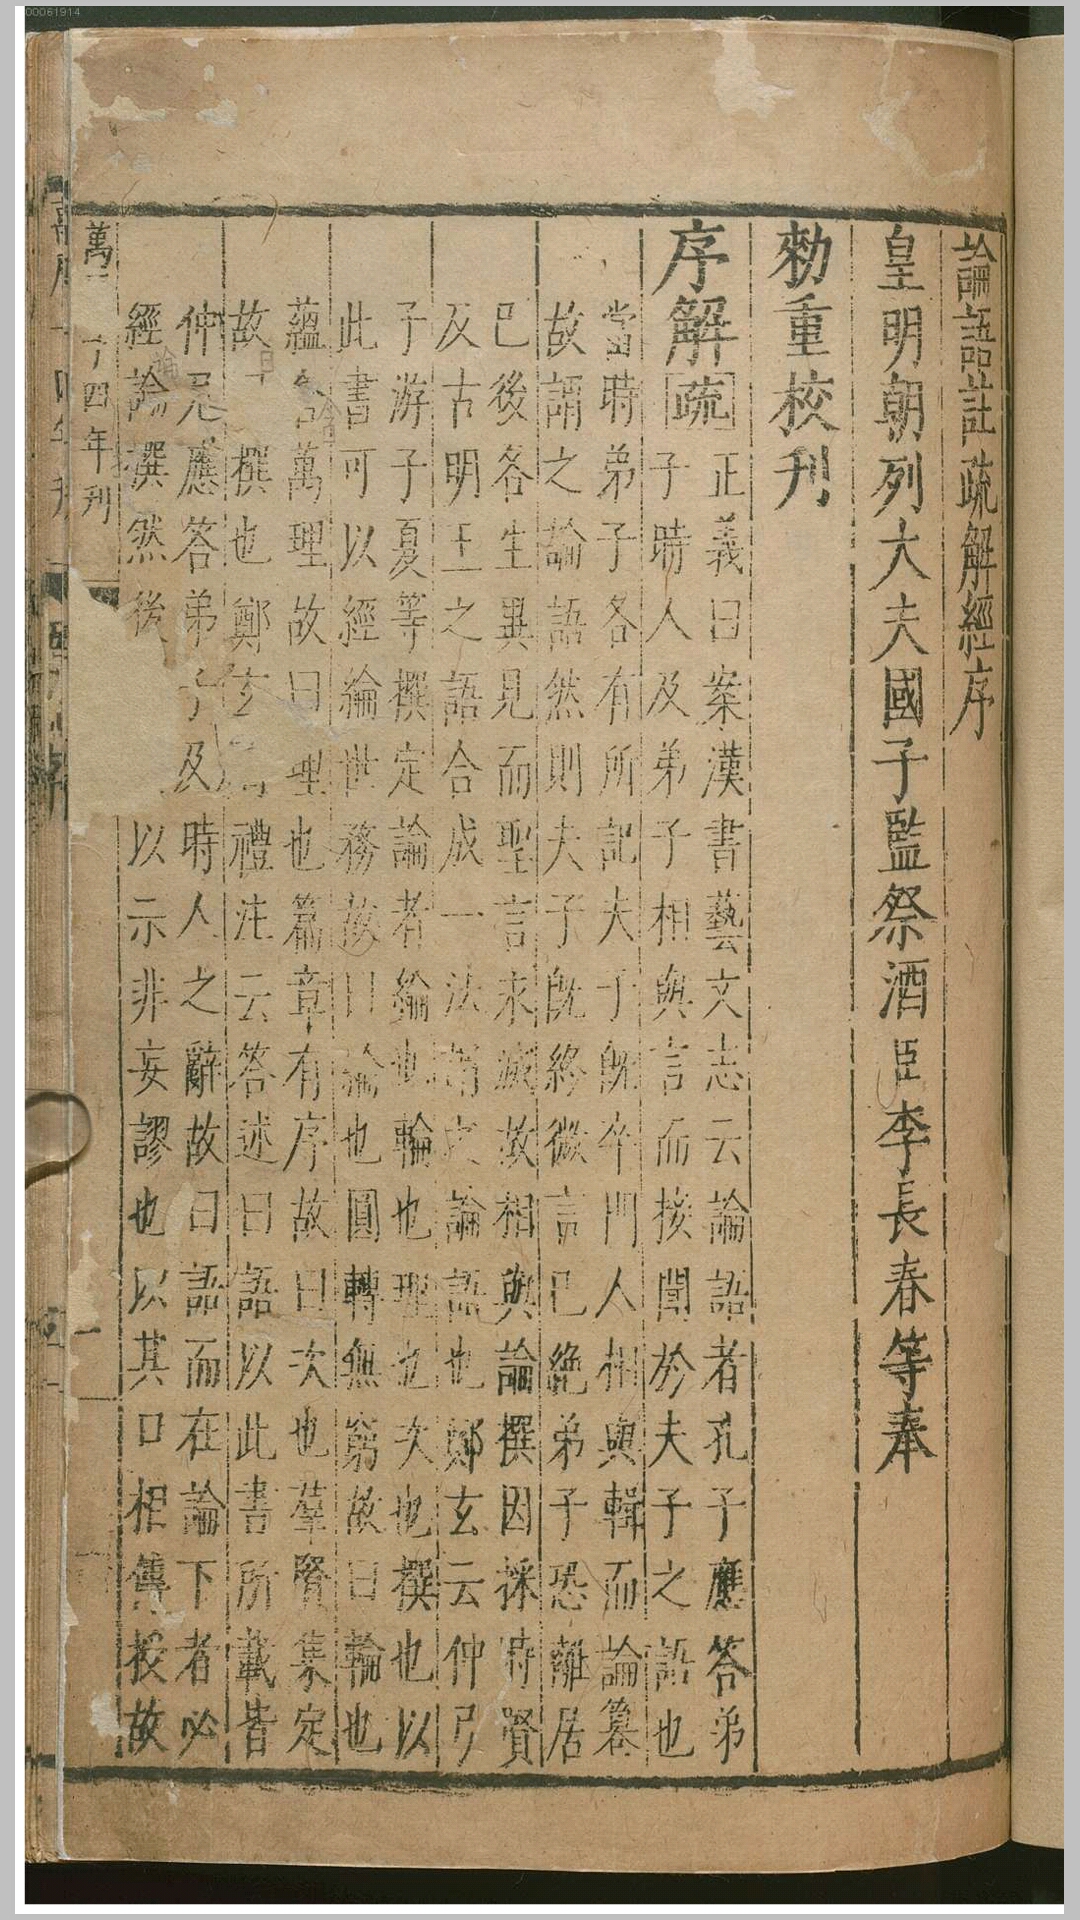 00061914
論語註疏解經序
皇明朝列大夫國子監祭酒臣李長春等奉
勑重校刋
序解疏
正義曰案漢書藝文志云論語者孔子應答弟
子時人及弟子相與言而接聞於夫子之語也
當時弟子各有所記夫子旣卒門人相與輯而論篹
故謂之論語然則夫子旣終微言已絶弟子恐離居
已後各生異見而聖言永滅故相與論撰因採時賢
及古明王之語合成一法謂之論語也鄭玄云仲弓
子游子夏等撰定論者綸也輪也理也次也撰也以
此書可以經綸世務故曰綸也圓轉無窮故曰輪也
蘊含萬理故曰理也篇章有序故曰次也羣賢集定
故 撰也鄭玄 禮注云答述曰語以此書所載皆
仲尼應答弟子及時人之辭故曰語而在論下者必
經論撰然後 以示非妄謬也以其口相傳授故
萬 十四年刋
一